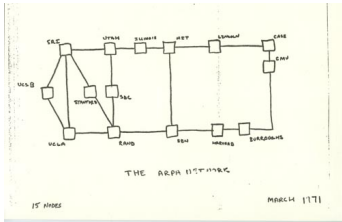 SRI
UTAH
ILLINOIS
MIT
LINCOLN
CASE
CMU
UCSB
STANFORD
SDC
UCLA
RAND
BBN
HARVARD
BURROUGHS
THE ARPA NETWORK
15 NODES
MARCH 1971